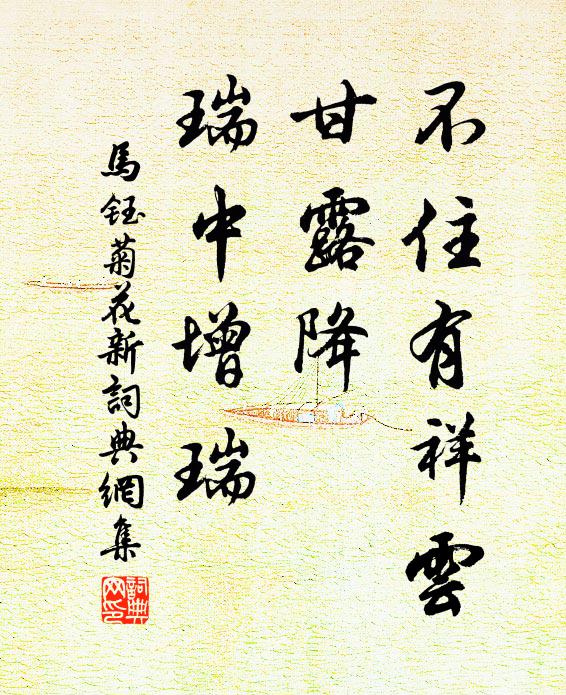 不住有祥雲
甘露降
瑞中增瑞
馬鈺菊花新詞典網集
詞典網印